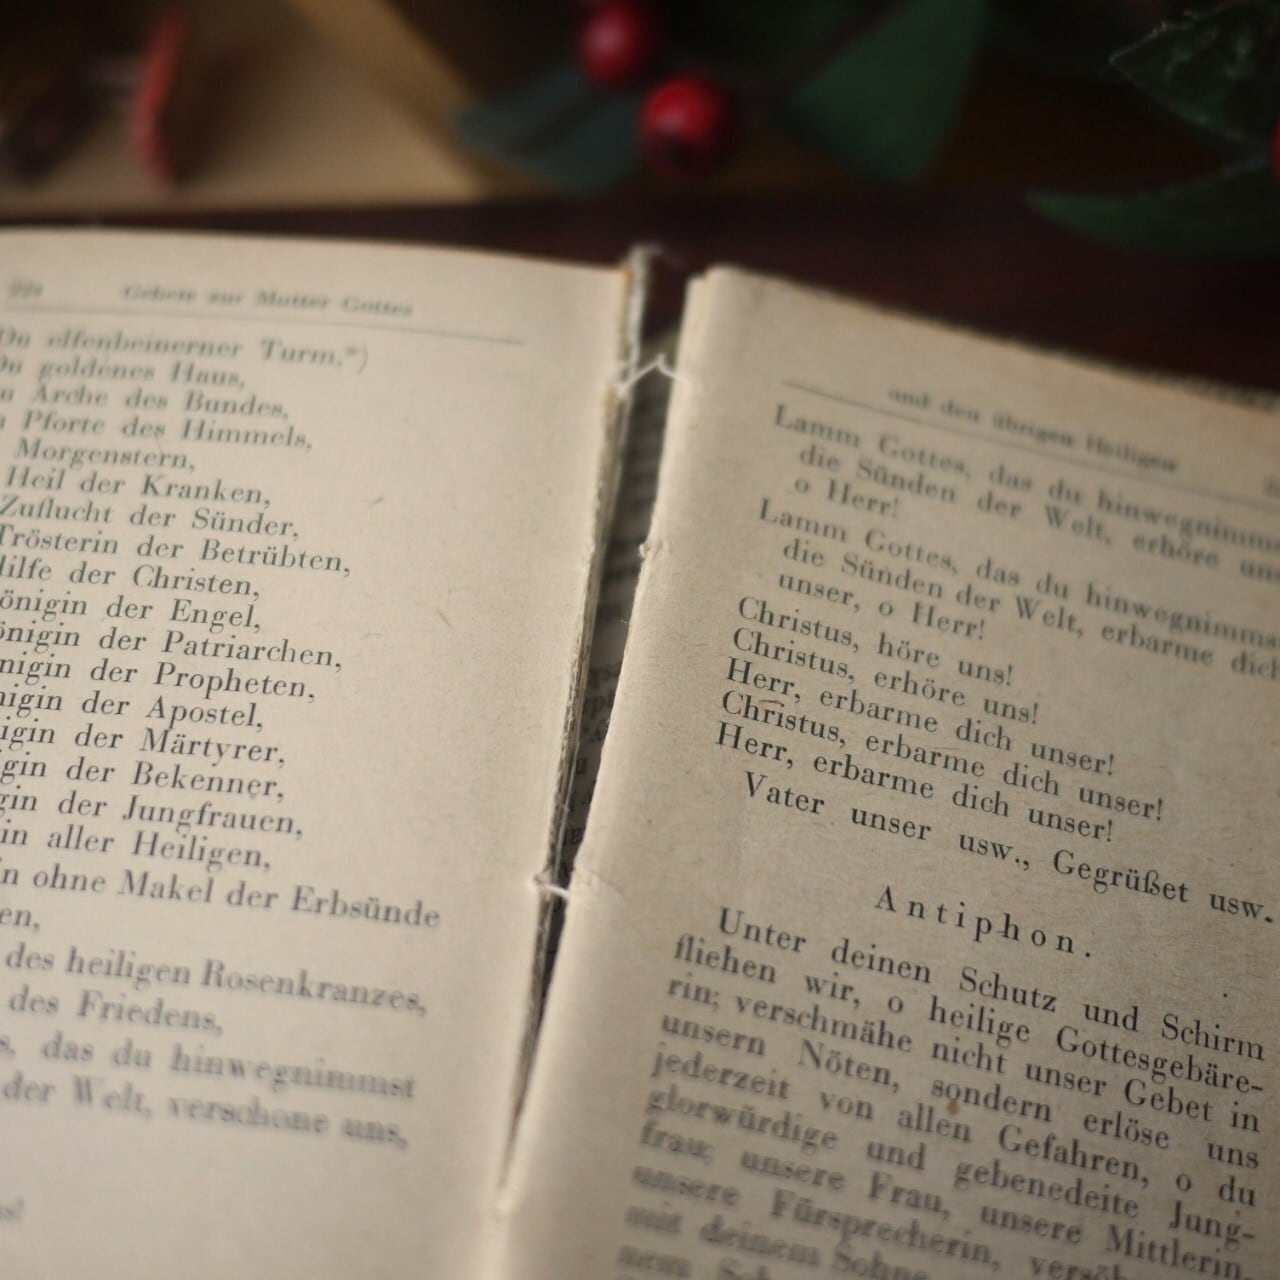 Gebete zur Mutter Gottes
Du elfenbeinerner Turm,*)
Du goldenes Haus,
Arche des Bundes,
Pforte des Himmels,
Morgenstern,
Heil der Kranken,
Zuflucht der Sünder,
Trösterin der Betrübten,
Hilfe der Christen,
önigin der Engel,
önigin der Patriarchen,
nigin der Propheten,
nigin der Apostel,
igin der Märtyrer,
gin der Bekenner,
gin der Jungfrauen,
in aller Heiligen,
in ohne Makel der Erbsünde
en,
des heiligen Rosenkranzes,
des Friedens,
s, das du hinwegnimmst
der Welt, verschone uns,
und den übrigen Heiligen
Lamm Gottes, das du hinwegnimmst
die Sünden der Welt, erhöre uns
o Herr!
Lamm Gottes, das du hinwegnimmst
die Sünden der Welt, erbarme dich
unser, o Herr!
Christus, höre uns!
Christus, erhöre uns!
Herr, erbarme dich unser!
Christus, erbarme dich unser!
Herr, erbarme dich unser!
Vater unser usw., Gegrüßet usw.
Antiphon.
Unter deinen Schutz und Schirm
fliehen wir, o heilige Gottesgebäre-
rin; verschmähe nicht unser Gebet in
unsern Nöten, sondern erlöse uns
jederzeit von allen Gefahren, o du
glorwürdige und gebenedeite Jung-
frau; unsere Frau, unsere Mittlerin,
unsere Fürsprecherin, versöh
mit deinem Sohne
nem